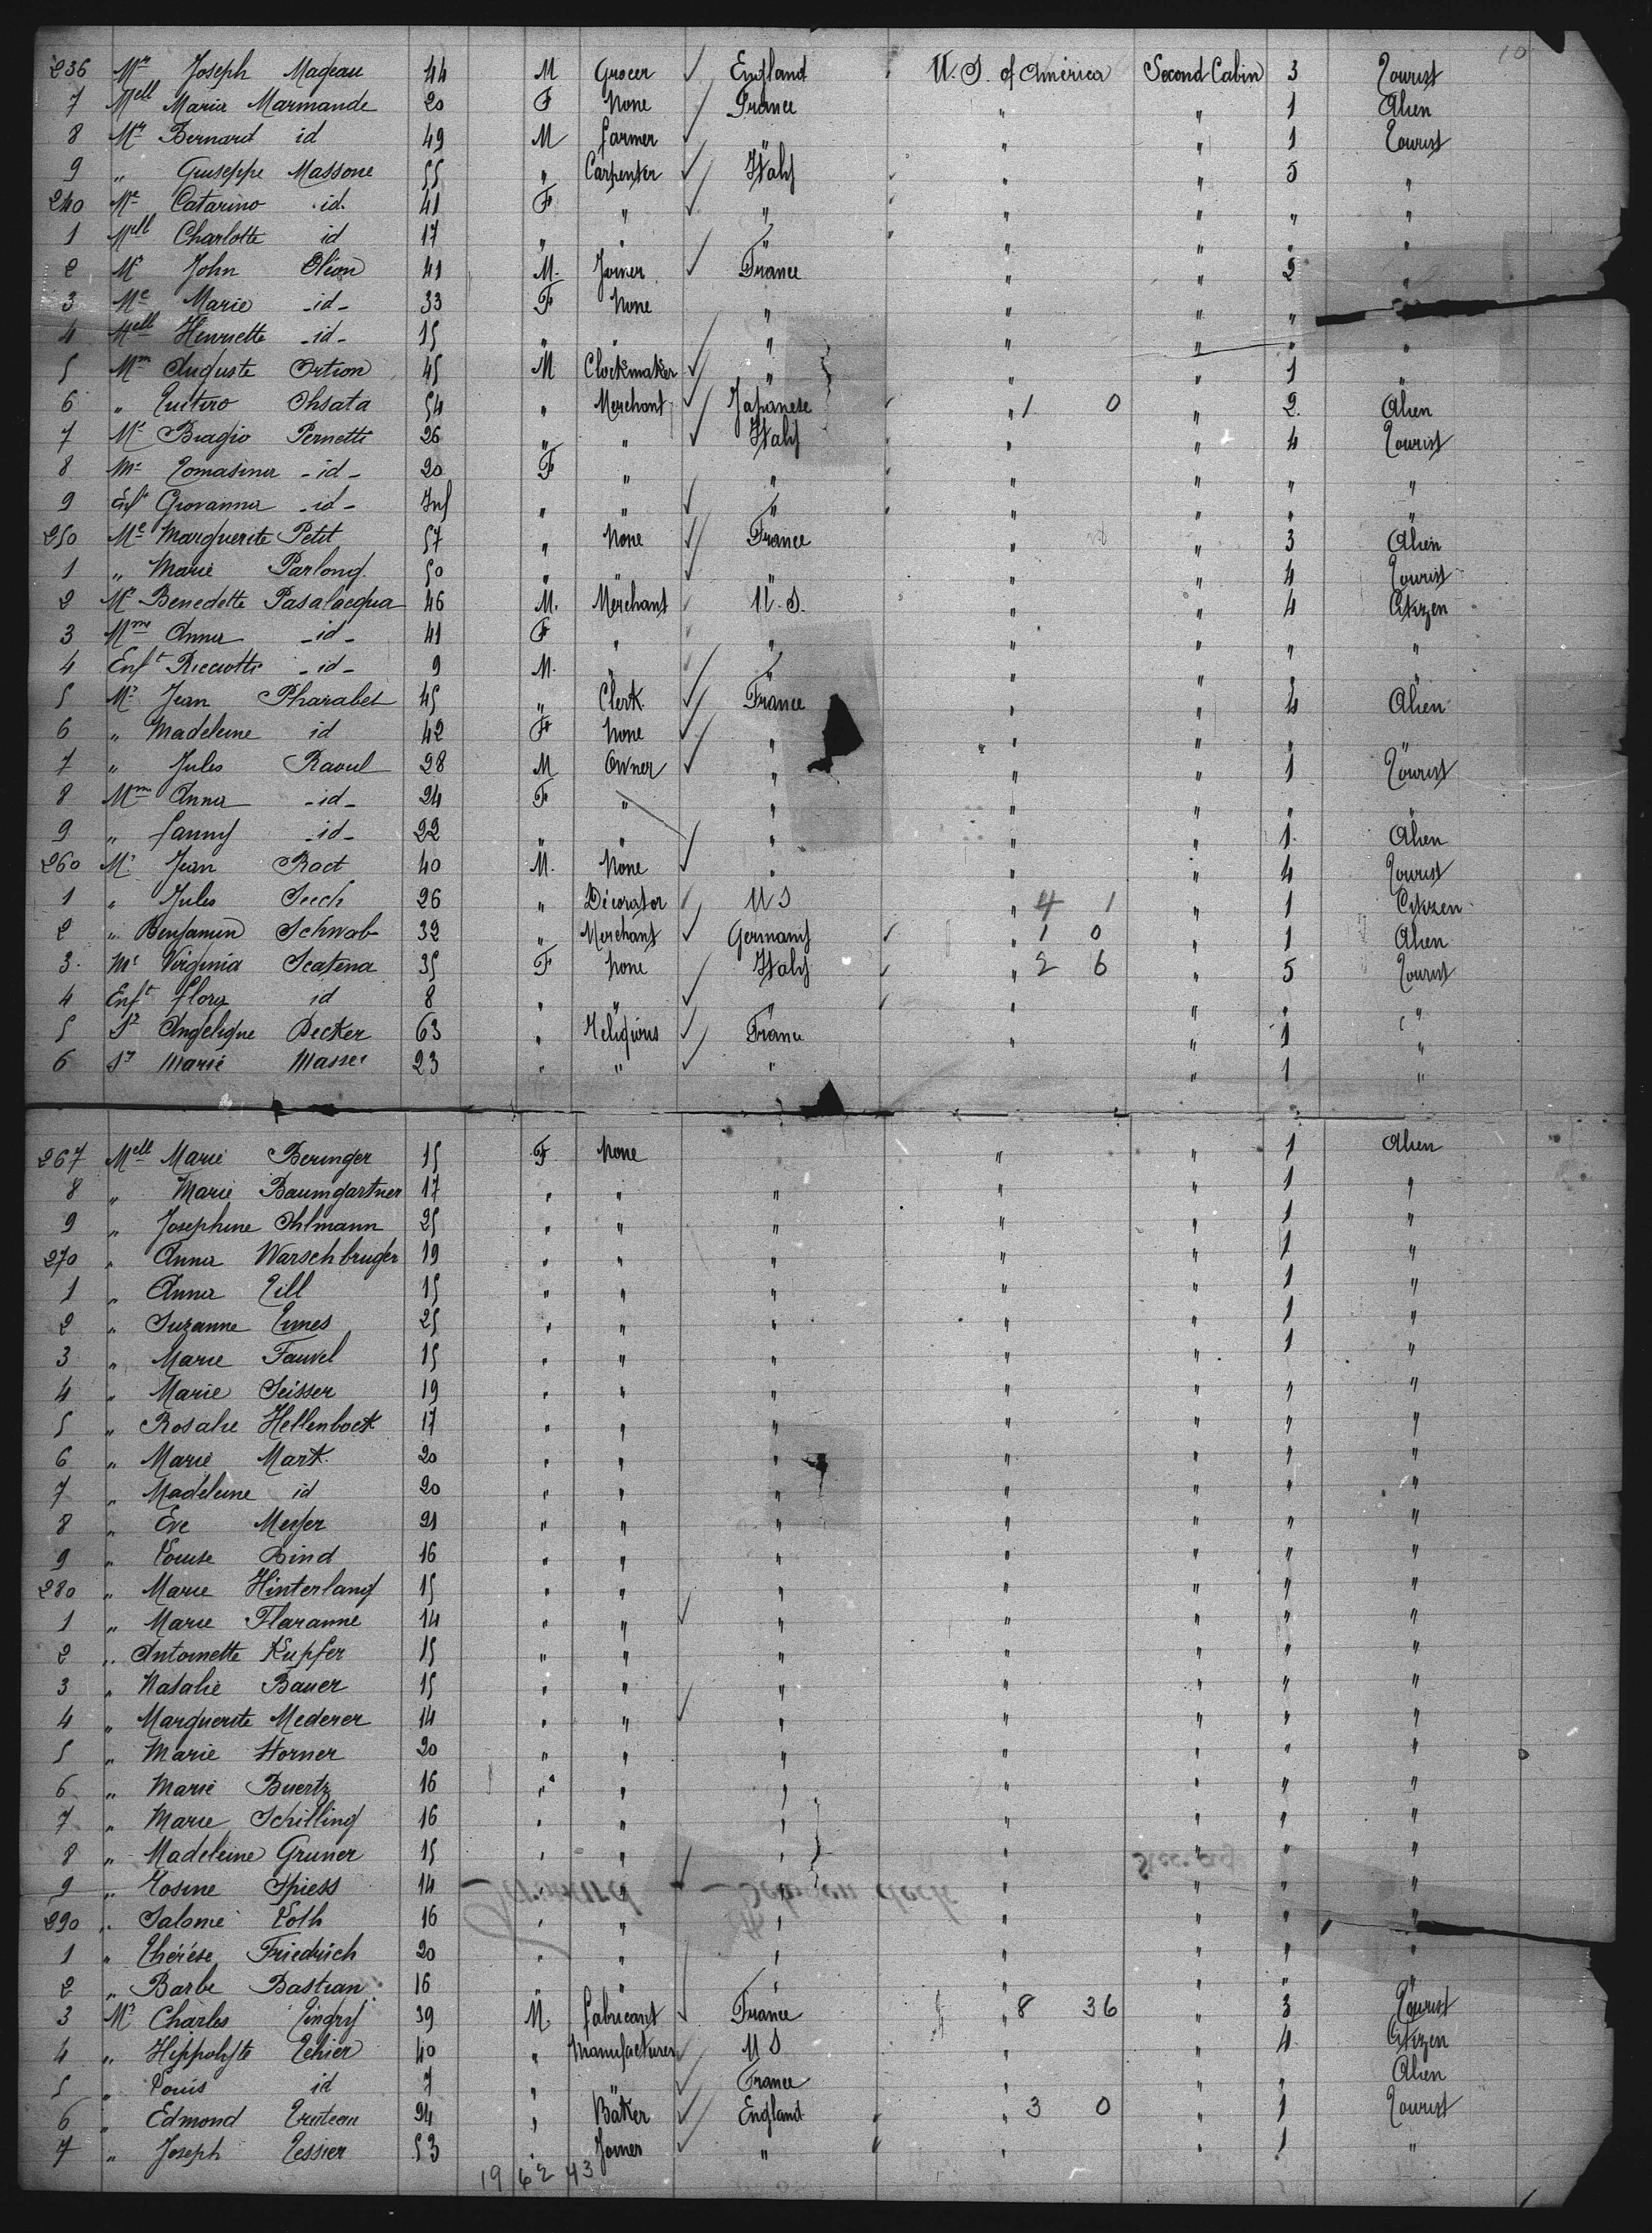 10
236 Mr Joseph Mageau 44 M Grocer ✓ England U.S. of América Second Cabin 3 Tourist
7 Mell Maria Marmande 20 F None ✓ France " " 1 Alien
8 Mr Bernard id 49 M farmer ✓ " " " 1 Tourist
9 " Giuseppe Massone 55 " Carpenter ✓ Italy " " 5 "
240 Me Catarino id. 41 F " ✓ " " " " "
1 Mell Charlotte id 17 " " " " " " "
2 Mr John Oléon 41 M. Joiner ✓ France " " 2 "
3 Me Marie -id- 33 F None " " " "
4 Mell Henriette -id- 15 " " " " " " "
5 Mr Auguste Ortion 45 M Clockmaker ✓ " " " 1 "
6 " Ohsata 54 " Merchant ✓ Japanese " 1 0 2. Alien
7 Mr Biagio Pernetti 26 " " ✓ Italy " " 4 Tourist
8 Me Tomasina -id- 20 F " " " " " "
9 Enft Giovanna -id- Inf " " ✓ " " " " "
250 Me Marguerite Petit 57 " None ✓ France " " 3 Alien
1 " Marie Parlong. 50 " " ✓ " " " 4 Tourist
2 Mr Benedette Pasalacqua 46 M. Merchant ✓ U.S. " " 4 Citizen
3 Mme Anna -id- 41 F " " " " " "
4 Enft Ricciotti -id- 9 M. " " " " " "
5 Mr Jean Pharabet 45 " Clerk. ✓ France " " 4 Alien
6 " Madeleine id 42 F None ✓ " " " " "
7 " Jules Raoul 28 M Owner ✓ " " " 1 Tourist
8 Mme Anna -id- 24 F " " " " " "
9 " fanny -id- 22 " " " " " 1. Alien
260 Mr Jean Ract 40 M. None ✓ " " " 4 Tourist
1 " Jules Seech 26 " Décorator ✓ U S " 4 1 " 1 Citizen
2 " Benjamin Schwab 32 " Merchant ✓ Germany ✓ " 1 0 " 1 Alien
3. Me Virginia Scatena 35 F None ✓ Italy ✓ " 2 6 " 5 Tourist
4 Enft flory id 8 " " ✓ " " " " "
5 Sr Angelique Decker 63 " Religious ✓ France " " 1 "
6 Sr Marie Masse 23 " " ✓ " " 1 "
267 Mell Marie Beringer 15 F. None " " 1 Alien
8 " Marie Baumgartner 17 " " " " " 1 "
9 " Josephine Ohlmann 25 " " " " " 1 "
270 " Anna Warschbruger 19 " " " " " 1 "
1 " Anna Till 15 " " " " " 1 "
2 " Suzanne 25 " " " " " 1 "
3 " Marie Fauvel 15 " " " " " 1 "
4 " Marie Seisser 19 " " " " " " "
5 " Rosalie Hellenbock 17 " " " " " " "
6 " Marie Mark. 20 " " " " " " "
7 " Madeleine id 20 " " " " " " "
8 " Eve Meyer 21 " " " " " " "
9 " Louise Bind 16 " " " " " " "
280 " Marie Hinterlang 15 " " " " " " "
1 " Marie Flaranne 14 " " ✓ " " " " "
2 " Antoinette Kupfer 15 " " " " " " "
3 " Natalie Bauer 15 " " " " " " "
4 " Marguerite Mederer 14 " " ✓ " " " " "
5 " Marie Horner 20 " " " " " " "
6 " Marie Buertz 16 " " " " " " "
7 " Marie Schilling 16 " " " " " " "
8 " Madeleine Gruner 15 " " " " " " "
9 " Rosine Spiess 14 " " ✓ " " " " "
290 " Salomé Voth 16 " " " " " " "
1 " Thérése Friedrich 20 " " " " " " "
2 " Barbe Bastian 16 " " " " " " "
3 Mr Charles Tingry 39 M. fabricant ✓ France " 8 36 " 3 Tourist
4 " Hippolyte Tehier 40 " Manufacturer ✓ U S " " 4 Citizen
5 " Louis id 7 " " ✓ France " " " Alien
6 " Edmond Truteau 24 " Baker ✓ England " 3 0 " 1 Tourist
7 " Joseph Tessier 53 " Joiner ✓ " " " 1 "
19 62 43